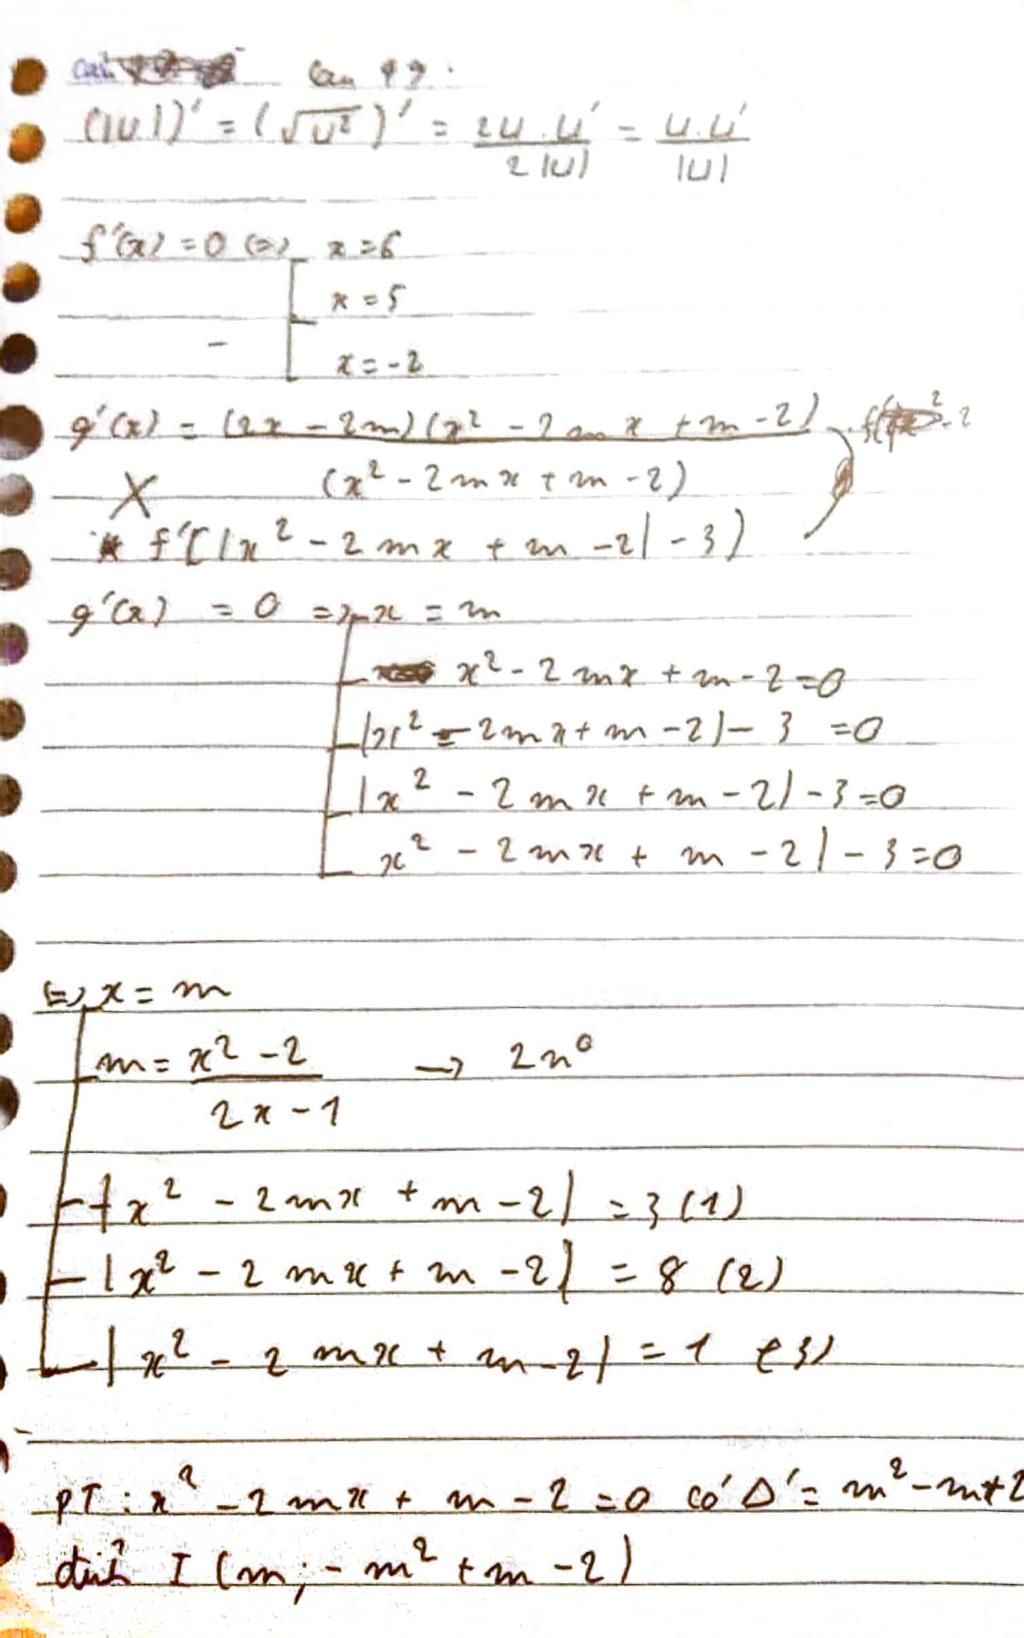 Câu 49:
(|u|)' = (√u²)' = 2u.u' / 2|u| = u.u' / |u|
f'(x) = 0 (=) x = 6
x = 5
x = -2
g'(x) = (2x - 2m)(x² - 2mx + m - 2)
X (x² - 2mx + m - 2)
* f'[|x² - 2mx + m - 2| - 3)
g'(x) = 0 => x = m
x² - 2mx + m - 2 = 0
|x² - 2mx + m - 2| - 3 = 0
|x² - 2mx + m - 2| - 3 = 0
x² - 2mx + m - 2| - 3 = 0
(=) x = m
m = x² - 2 / 2x - 1 → 2n⁰
|x² - 2mx + m - 2| = 3 (1)
|x² - 2mx + m - 2| = 8 (2)
|x² - 2mx + m - 2| = 1 (3)
PT : x² - 2mx + m - 2 = 0 có Δ' = m² - m + 2
đỉnh I (m; - m² + m - 2)